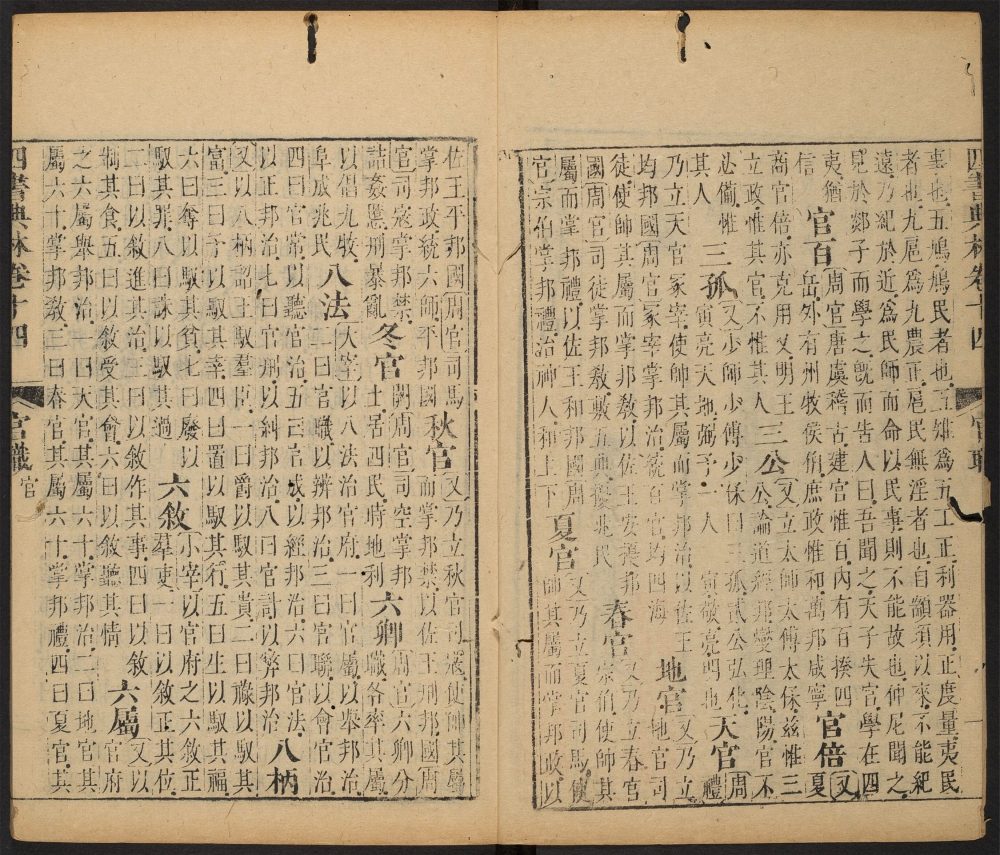 四書典林卷十四 官職
事也五鳩鳩民者也五雉爲五工正利器用正度量夷民
者也九扈爲九農正扈民無淫者也自顓頊以來不能紀
遠乃紀於近爲民師而命以民事則不能故也仲尼聞之
見於郯子而學之旣而告人曰吾聞之天子失官學在四
夷猶信 官百 周官唐虞稽古建官惟百內有百揆四岳外有州牧侯伯庶政惟和萬邦咸寧 官倍 又夏
商官倍亦克用乂明王立政惟其官不惟其人 三公 又立太師太傅太保茲惟三公論道經邦燮理陰陽官不
必備惟其人 三孤 又少師少傅少保曰三孤貳公弘化寅亮天地弼予一人 寅敬亮明也 天官 周禮
乃立天官冢宰使帥其屬而掌邦治以佐王均邦國 周官冢宰掌邦治統百官均四海 地官 又乃立地官司
徒使帥其屬而掌邦敎以佐王安擾邦國 周官司徒掌邦敎敷五典擾兆民 春官 又乃立春官宗伯使帥其
屬而掌邦禮以佐王和邦國 周官宗伯掌邦禮治神人和上下 夏官 又乃立夏官司馬使帥其屬而掌邦政以
佐王平邦國 周官司馬掌邦政統六師平邦國 秋官 又乃立秋官司寇使帥其屬而掌邦禁以佐王刑邦國 周
官司寇掌邦禁詰姦慝刑暴亂 冬官 闕 周官司空掌邦土居四民時地利 六卿 周官六卿分職各率其屬
以倡九牧阜成兆民 八法 大宰以八法治官府一曰官屬以舉邦治二曰官職以辨邦治三曰官聯以會官治
四曰官常以聽官治五曰官成以經邦治六曰官法以正邦治七曰官刑以糾邦治八曰官計以弊邦治 八柄
又以八柄詔王馭羣臣一曰爵以馭其貴二曰祿以馭其富三曰予以馭其幸四曰置以馭其行五曰生以馭其福
六曰奪以馭其貧七曰廢以馭其罪八曰誅以馭其過 六敘 小宰以官府之六敘正羣吏一曰以敘正其位
二曰以敘進其治三曰以敘作其事四曰以敘制其食五曰以敘受其會六曰以敘聽其情 六屬 又以官府
之六屬舉邦治一曰天官其屬六十掌邦治二曰地官其屬六十掌邦敎三曰春官其屬六十掌邦禮四曰夏官其
四書典林卷十四 官職 官